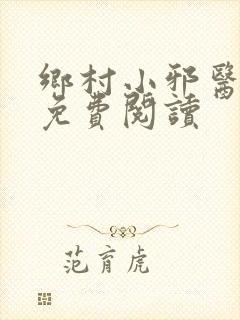 鄉村小邪醫
免費閱讀
范育虎